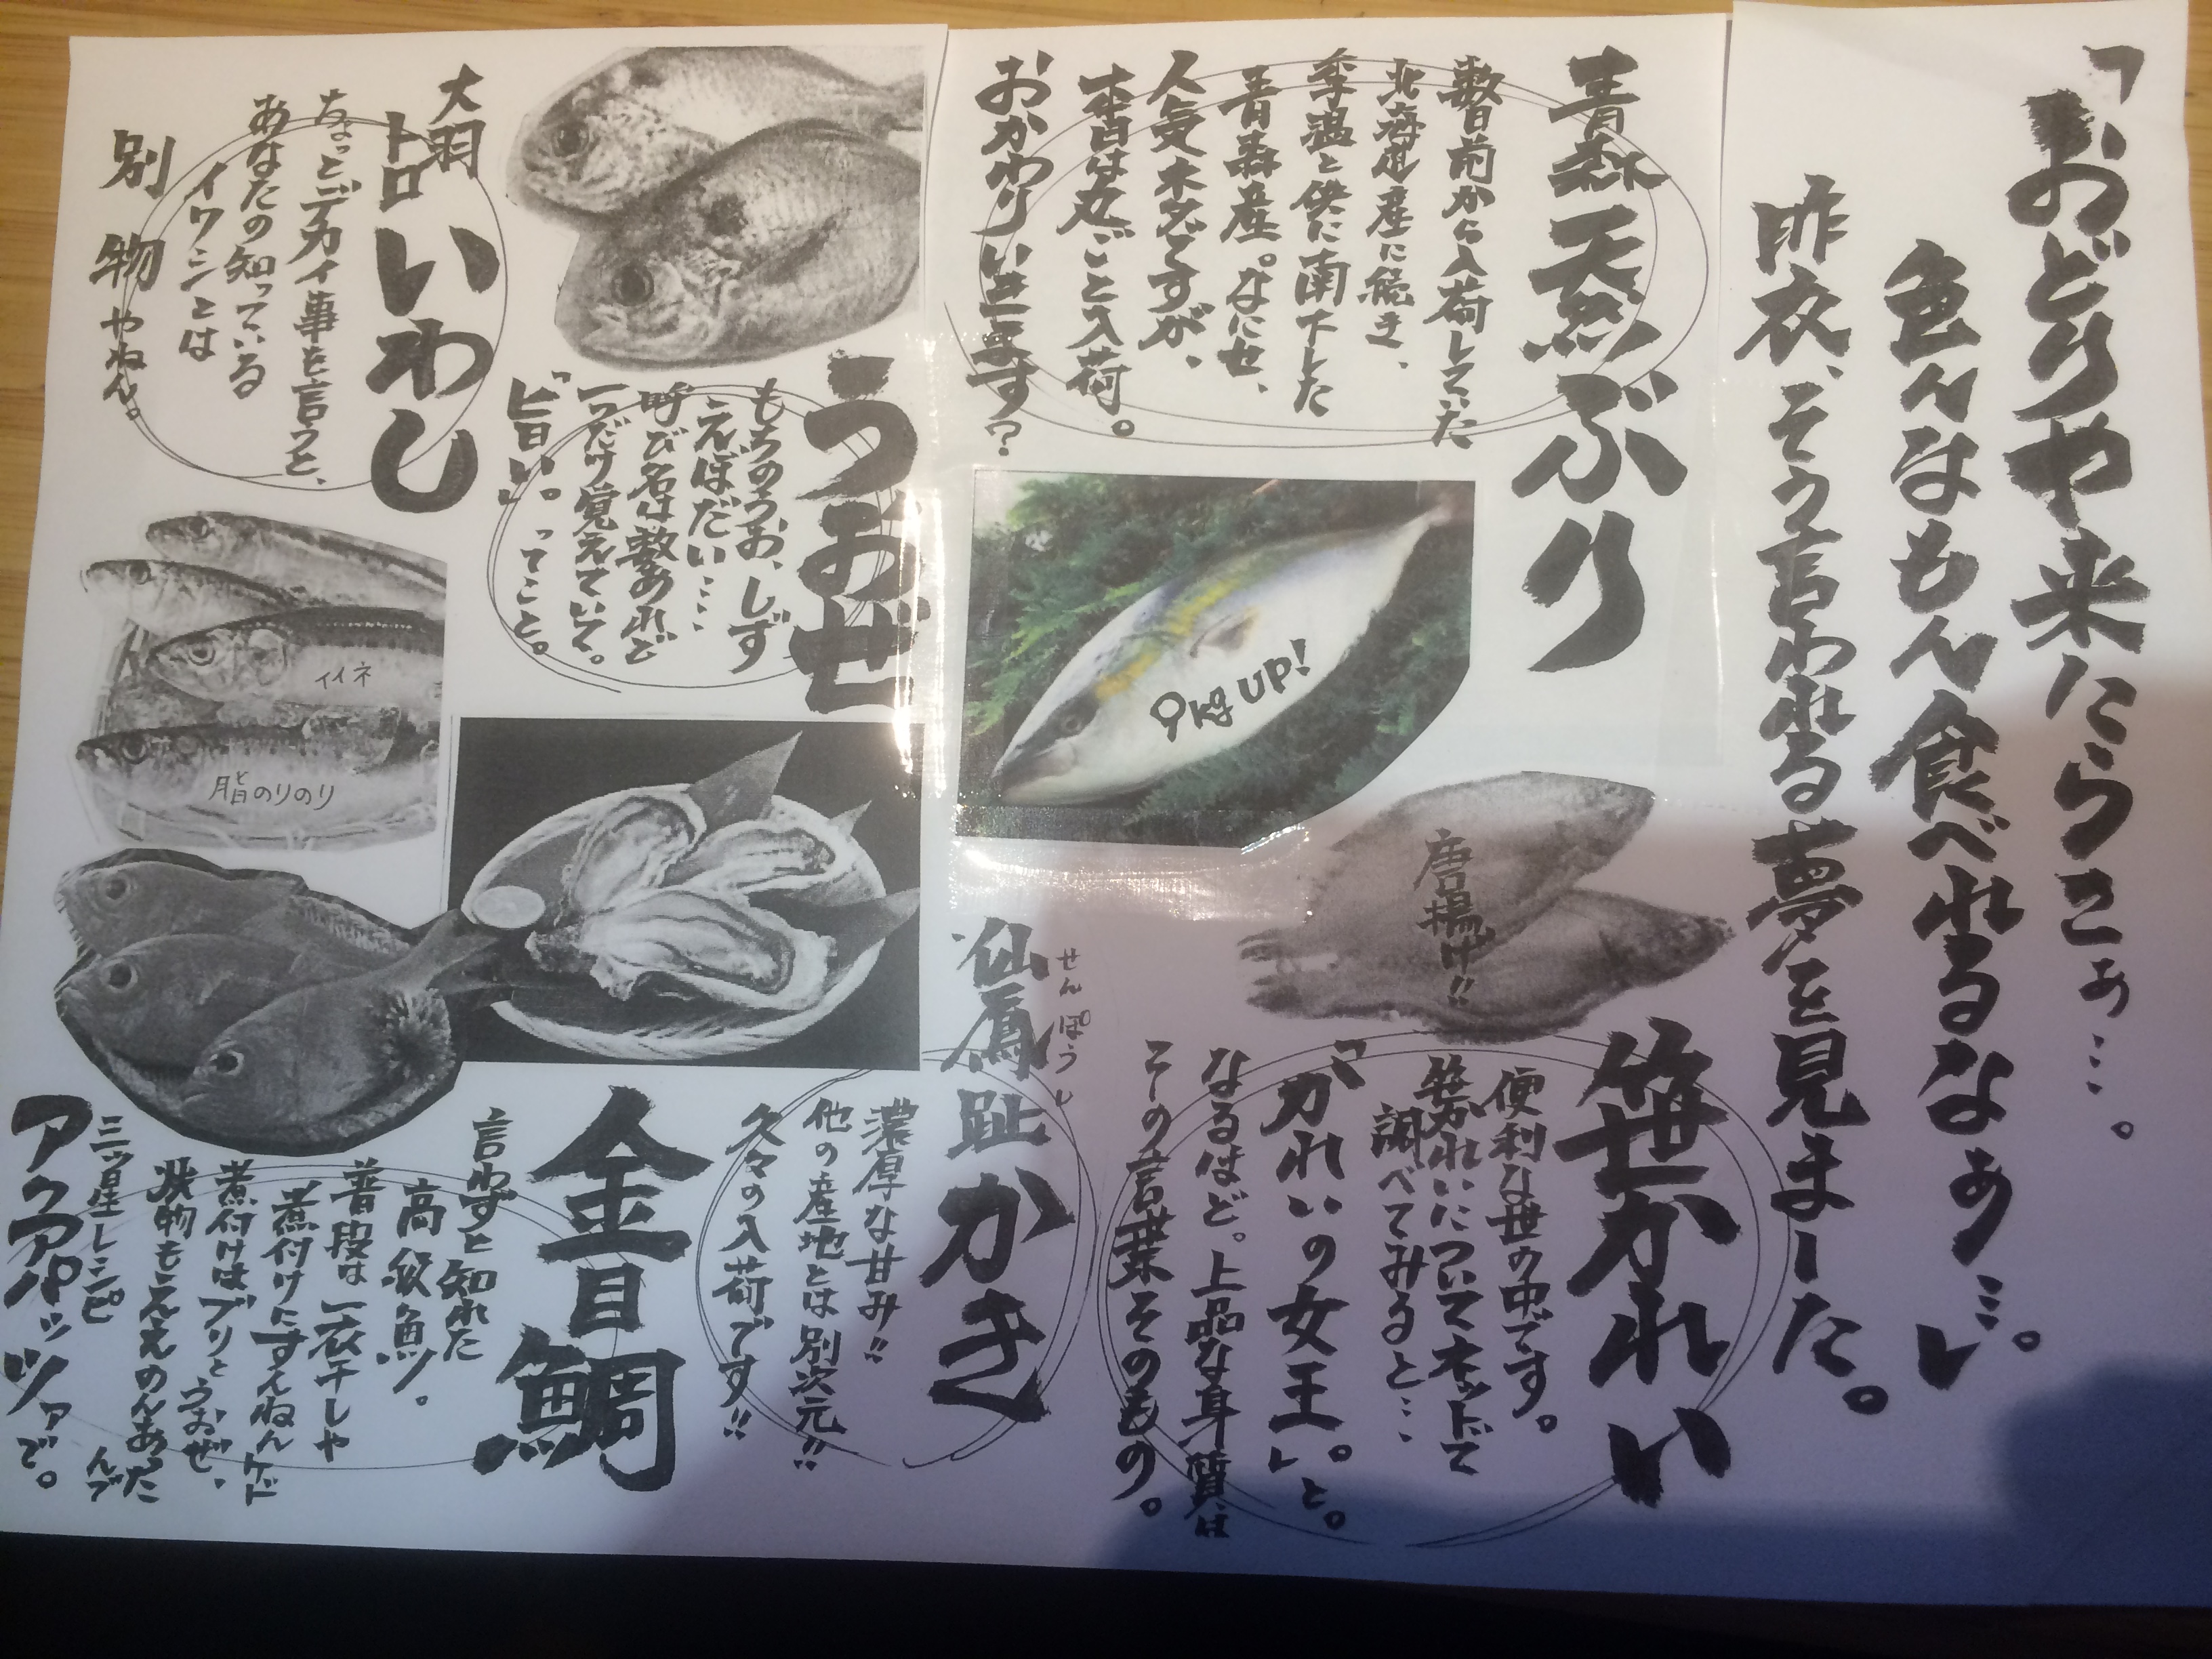 「おどりや来たらさぁ…。
色んなもん食べれるなぁ…。」
昨夜、そう言われる夢を見ました。
青森天然ぶり
数日前から入荷していた
北海道産に続き、
季温と供に南下した
青森産。なにせ、
人気木ダですが、
本日は丸ごと入荷。
おかわりいきます?
9kg UP!
唐揚げ!!
笹かれい
便利な世の中です。
笹かれいについてネットで
調べてみると…
「かれいの女王。」と。
なるほど。上品な身質は
この言葉そのもの。
せんぽうし
仙鳳趾かき
濃厚な甘み!!
他の産地とは別次元!!
久々の入荷です!!
うおぜ
もちのうお、しず
えぼだい…
呼び名は数あれど
一つだけ覚えていて。
「旨い。」ってこと。
大羽
トロいわし
ちょっとデカイ事を言うと、
あなたの知っている
イワシとは
別物やねん。
イイネ
脂のりのり
金目鯛
言わずと知れた
高級魚。
普段は一夜干しや
煮付けにすんねんけど
煮付けはブリとうおぜ、
焼物もええのんあったんで
三ツ星レシピ
アクアパッツァで。